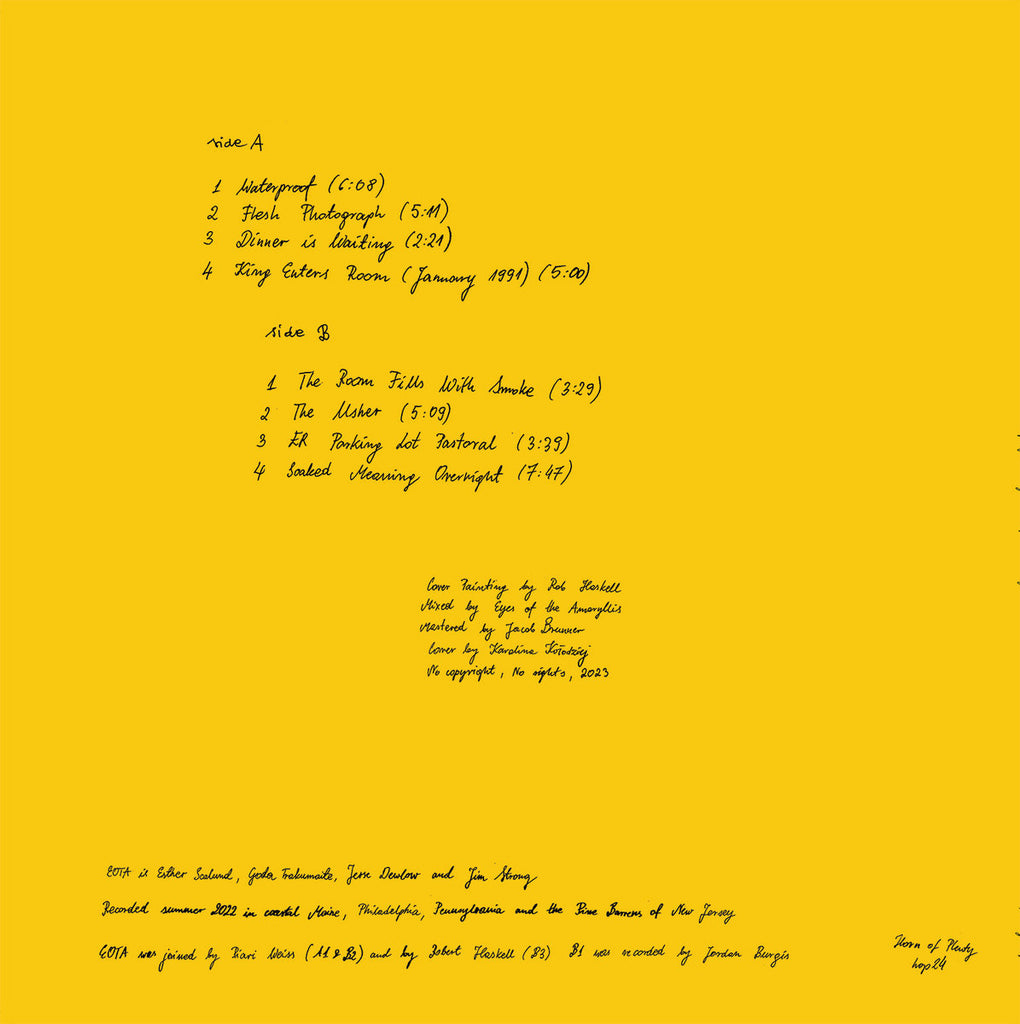 side A
1 Waterproof (6:08)
2 Flesh Photograph (5:11)
3 Dinner is Waiting (2:21)
4 King Enters Room (January 1991) (5:00)
side B
1 The Room Fills With Smoke (3:29)
2 The Usher (5:09)
3 ER Parking Lot Pastoral (3:39)
4 Soaked Meaning Overnight (7:47)
Cover Painting by Rob Haskell
Mixed by Eyes of the Amaryllis
Mastered by Jacob Brunner
Cover by Karolina Kołodziej
No copyright, No rights, 2023
EOTA is Esther Scelund, Goda Trakumaite, Jesse Dewlow and Jim Strong
Recorded summer 2022 in coastal Maine, Philadelphia, Pennsylvania and the Pine Barrens of New Jersey
EOTA was joined by Weiss (A1 & B2) and by Robert Haskell (B3) B1 was recorded by Jordan Burgis
Horn of Plenty
hop24